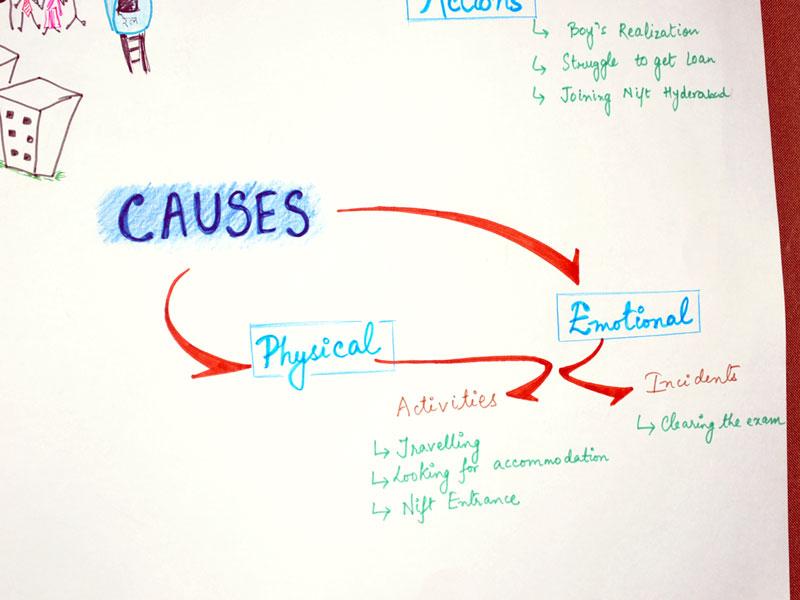 रेल
Actions
Boy's Realization
Struggle to get Loan
Joining Nift Hyderabad
CAUSES
Emotional
Physical
Incidents
Activities
Clearing the exam
Travelling
Looking for accommodation
Nift Entrance